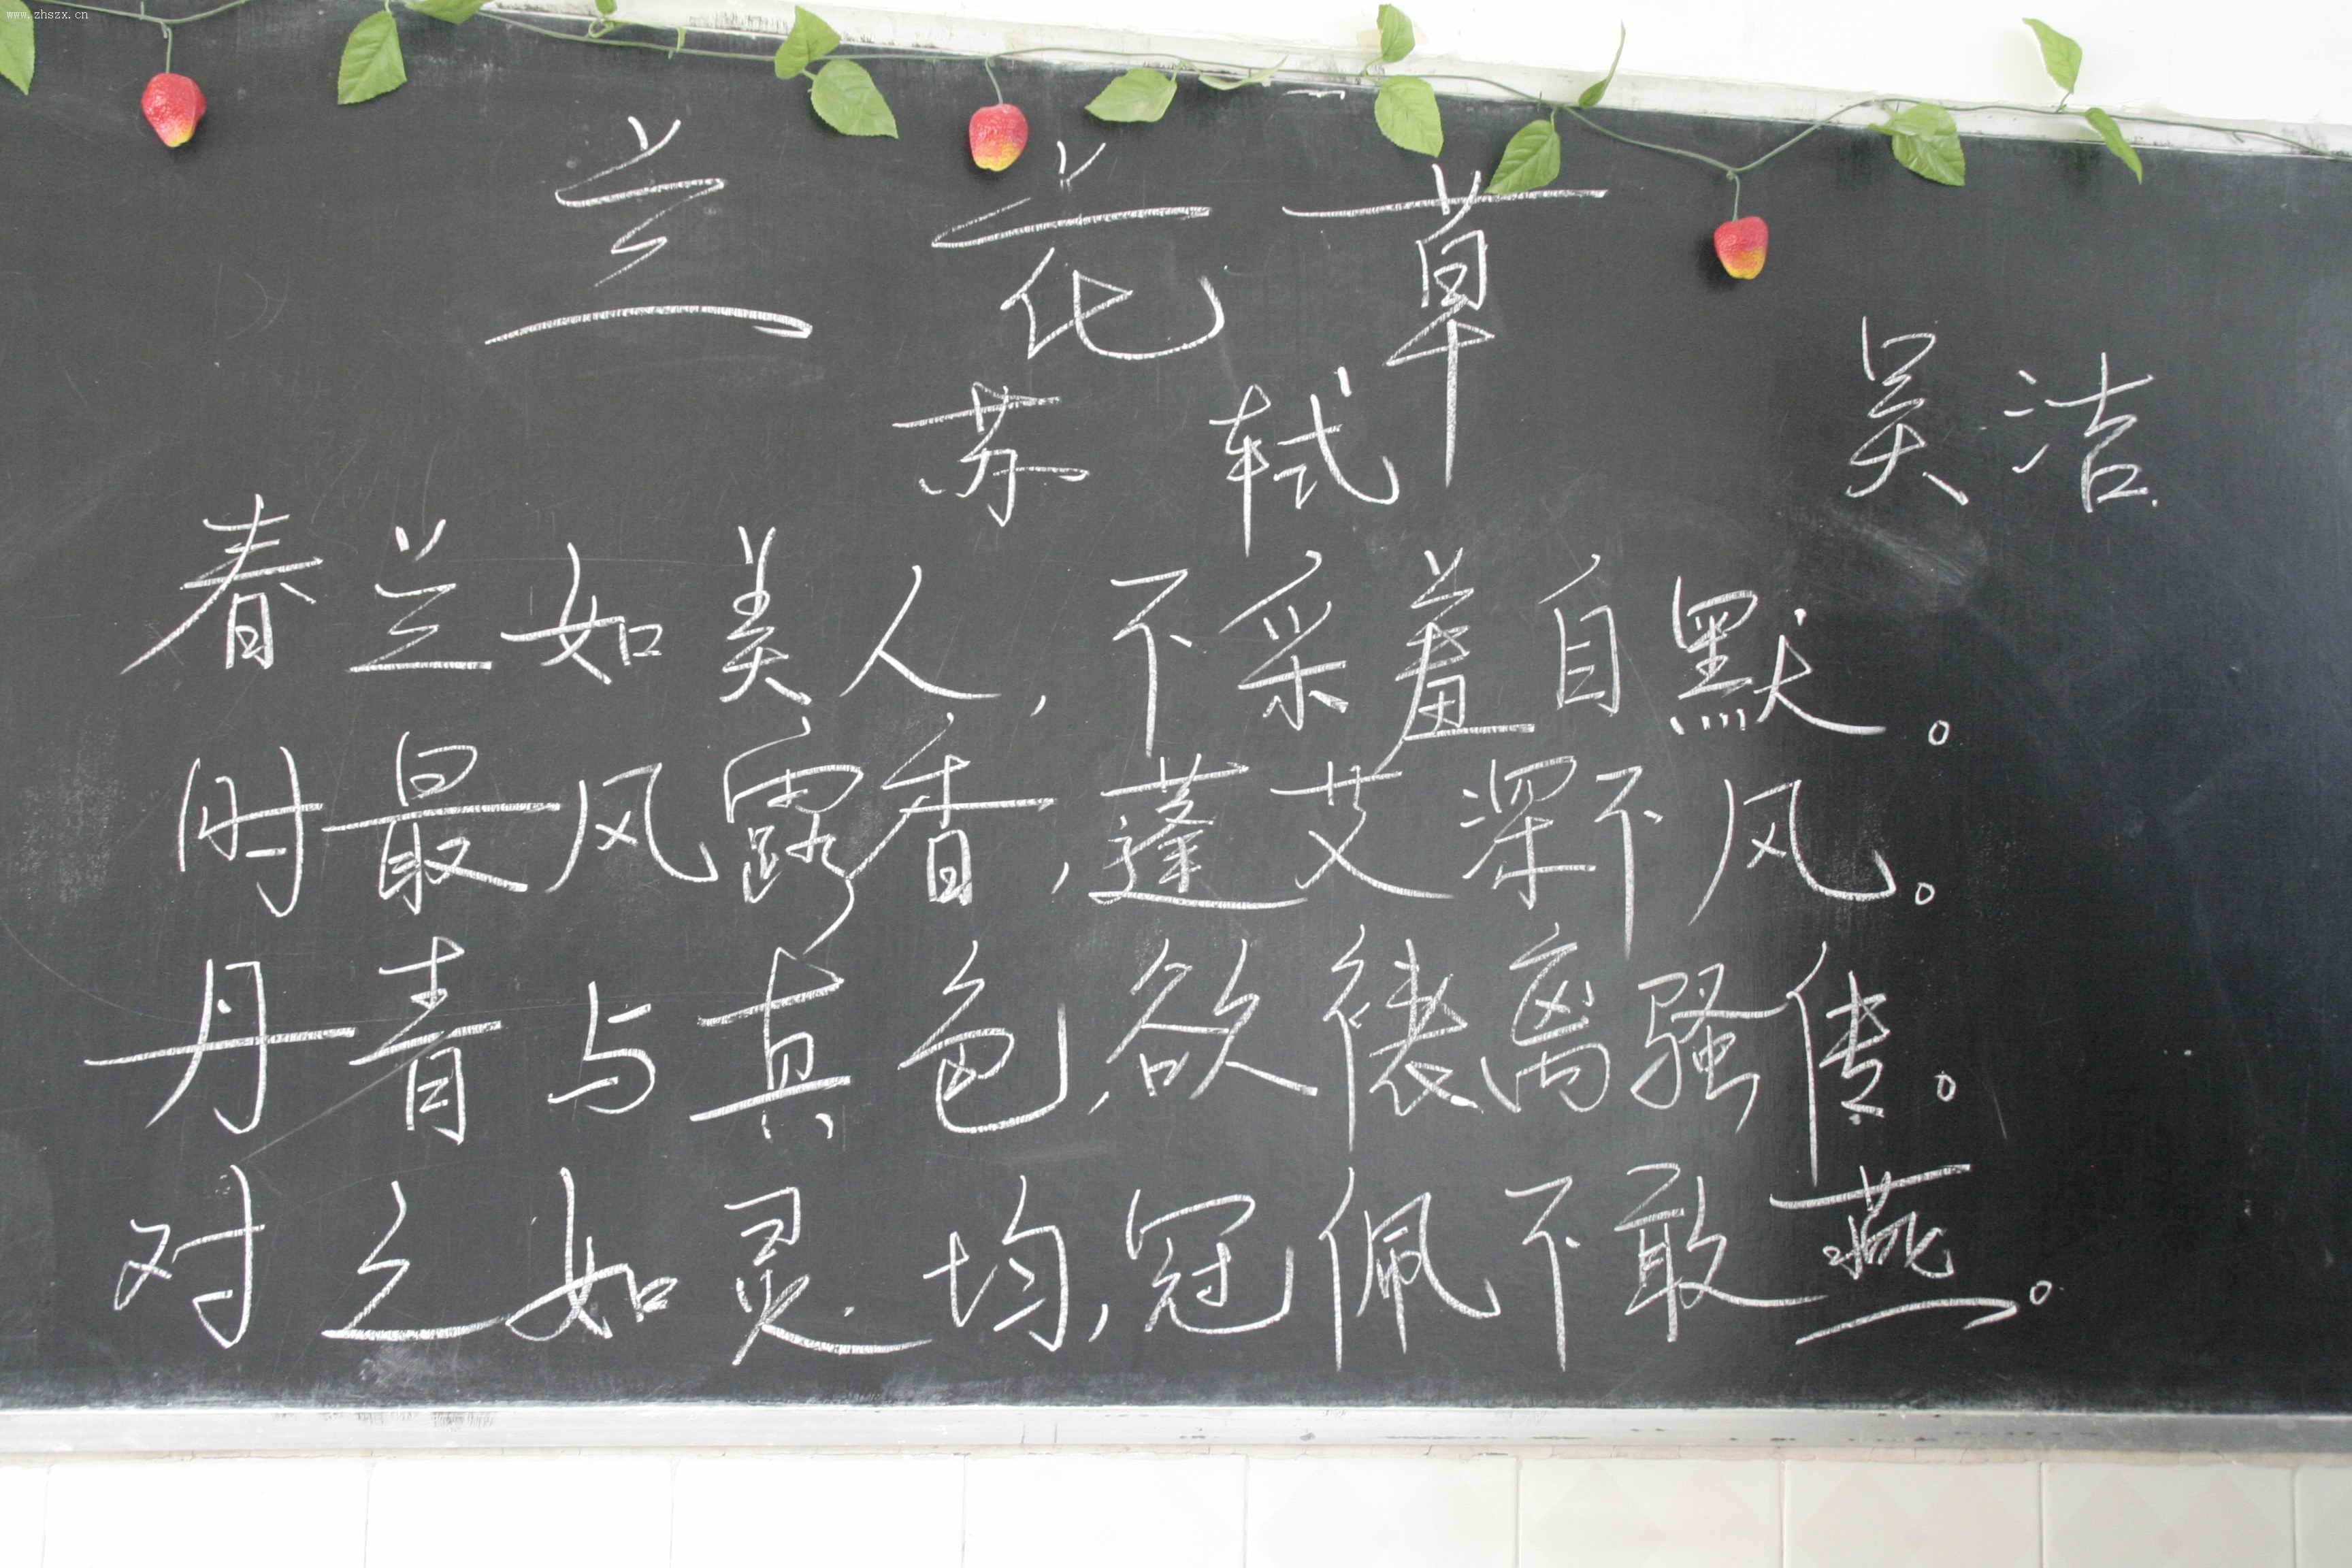 www.zhszx.cn
兰花草
苏轼
吴洁
春兰如美人，不采羞自默。
时最风露香，蓬艾深不风。
丹青与真色，欲褄离骚传。
对之如灵均，冠佩不敢燕。